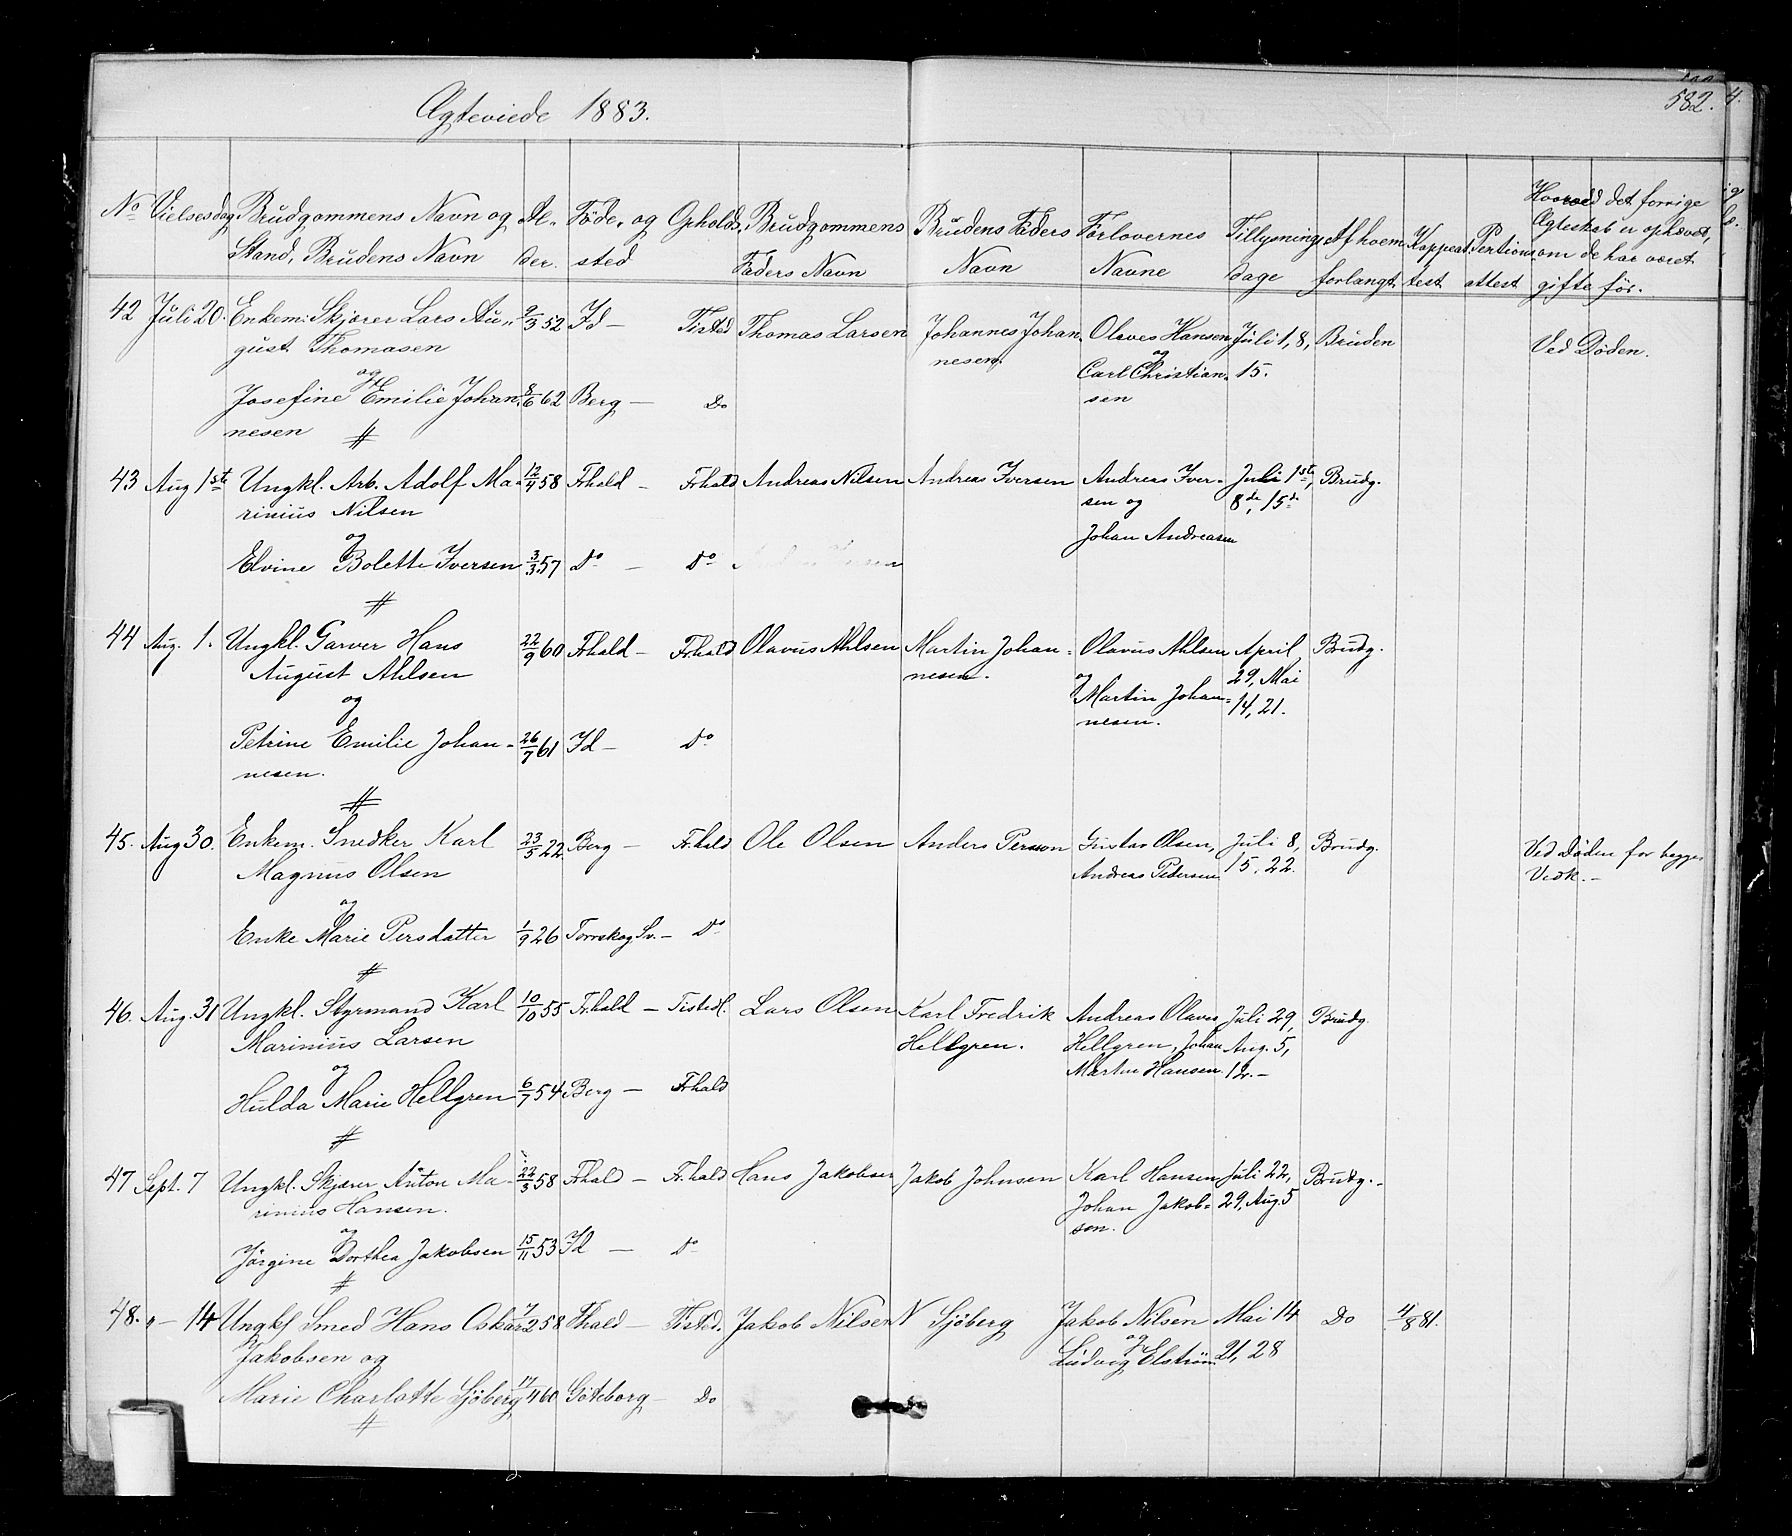 Ægteviede 1883.
582.
No Vielsesdag Brudgommens Navn og Stand, Brudens Navn Alder. Föde- og Opholdssted Brudgommens Faders Navn Brudens Faders Navn Forlovernes Navne Tillysningsdage Af hvem forlangt. Koppeattest attest Hvorved det forrige Ægteskab er ophævet, om de har været gifte för.
42 Juli 20. Enkem: Skjærer Lars Au- 9/3 52 Id — Tisted Thomas Larsen Johannes Johan- Olaves Hansen Juli 1, 8, Bruden Ved Döden.
gust Thomasen nesen. og
og Carl Christian- 15.
Josefine Emilie Johan- 8/6 62 Berg — Do sen
nesen
#
43 Aug 1ste Ungkl. Arb. Adolf Ma- 12/4 58 Frhald — Frhald Andreas Nilsen Andreas Iversen Andreas Iver- Juli 1ste, Brudg.
rinius Nilsen sen og 8de, 15de
og Johan Andreasen
Elvine Bolette Iversen 3/3 57 Do — Do
#
44 Aug. 1. Ungkl. Garver Hans 22/9 60 Frhald — Frhald Olavus Ahlsen Martin Johan- Olavus Ahlsen April Brudg.
August Ahlsen nesen. og 29, Mai
og Martin Johan- 14, 21.
Petrine Emilie Johan- 26/7 61 Id — Do nesen.
nesen.
#
45. Aug 30. Enkem. Snedker Karl 23/5 22 Berg — Fr.hald Ole Olsen Anders Person Gustav Olsen, Juli 8, Brudg. Ved Döden for begges
Magnus Olsen Andreas Pedersen 15, 22. Vedk. —
og
Enke Marie Persdatter 1/9 26 Torrskog Sv. — Do
#
46. Aug. 31 Ungkl. Styrmand Karl 10/10 55 Fr.hald — Tistedl. Lars Olsen Karl Fredrik Andreas Olaves Juli 29, Brudg.
Marinius Larsen Hellgren. Hellgren, Johan Aug. 5,
og Martin Hansen. 12. —
Hulda Marie Hellgren 6/7 54 Berg — Frhald
#
47 Sept. 7 Ungkl. Skjærer Anton Ma- 22/3 58 Frhald — Fr.hald Hans Jakobsen Jakob Johnsen Karl Hansen Juli 22, Brudg. -
rinius Hansen. Johan Jakob- 29, Aug. 5
og sen.
Jörgine Dorthea Jakobsen 15/11 53 Id — Do
#
48. " — 14 Ungkl Smed Hans Oskar 7/2 58 Fhald — Tisted. Jakob Nilsen N Sjöberg Jakob Nilsen Mai 14 Do 4/8 81.
Jakobsen og og
Ludvig Elström 21, 28
Marie Charlotte Sjöberg 17/4 60 Göteborg — Do
#